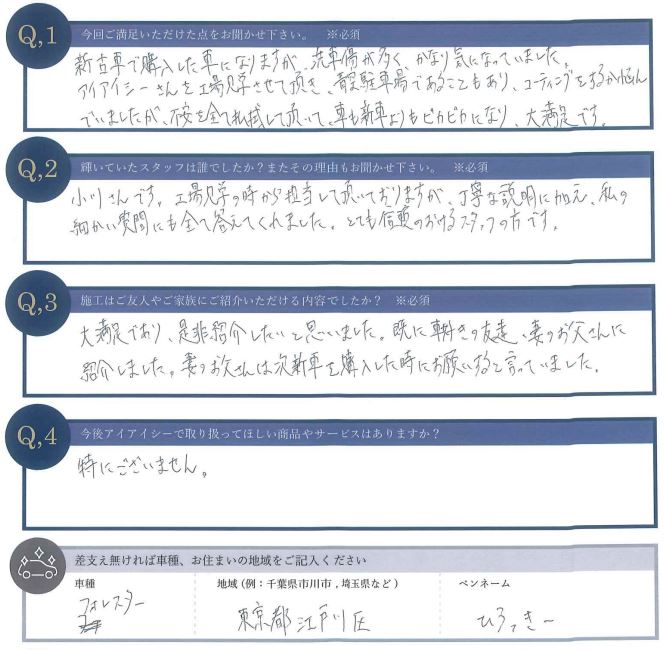 Q,1 今回ご満足いただけた点をお聞かせ下さい。 ※必須
新古車で購入した車になりますが、洗車傷が多く、かなり気になっていました。
アイアイシーさんを工場見学させて頂き、青空駐車場であることもあり、コーティングをするか悩ん
でいましたが、不安を全て払拭して頂いて、車も新車よりもピカピカになり、大満足です。
Q,2 輝いていたスタッフは誰でしたか?またその理由もお聞かせ下さい。 ※必須
小川さんです。工場見学の時から担当して頂いておりますが、丁寧な説明に加え、私の
細かい質問にも全て答えてくれました。とても信頼のおけるスタッフの方です。
Q,3 施工はご友人やご家族にご紹介いただける内容でしたか? ※必須
大満足であり、是非紹介したいと思いました。既に車好きの友達、妻のお父さんに
紹介しました。妻のお父さんは次新車を購入した時にお願いすると言っていました。
Q,4 今後アイアイシーで取り扱ってほしい商品やサービスはありますか?
特にございません。
差支え無ければ車種、お住まいの地域をご記入ください
車種 地域 (例:千葉県市川市 , 埼玉県など) ペンネーム
フォレスター 東京都江戸川区 ひろっきー